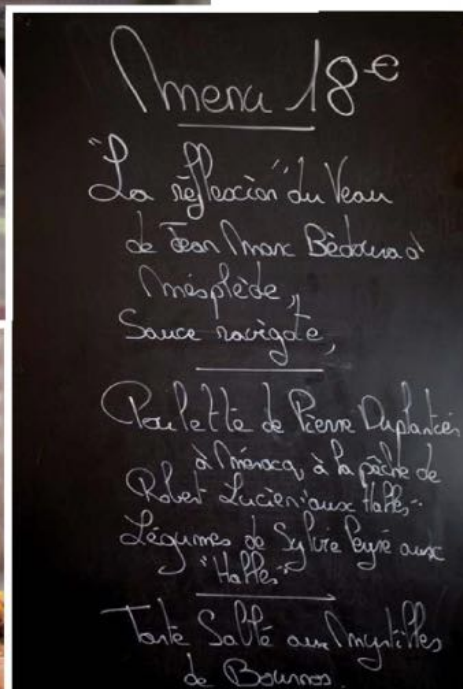 Menu 18€
"La réflexion" du Veau
de Jean Marc Bédoura à
Mesplède,
Sauce ravigote,
Poulette de Pierre Duplantier
à Ménacq, à la pêche de
Robert Lucien "aux Halles"
Légumes de Sylvie Peyré aux
"Halles"
Tarte Sablé aux Myrtilles
de Bournos.